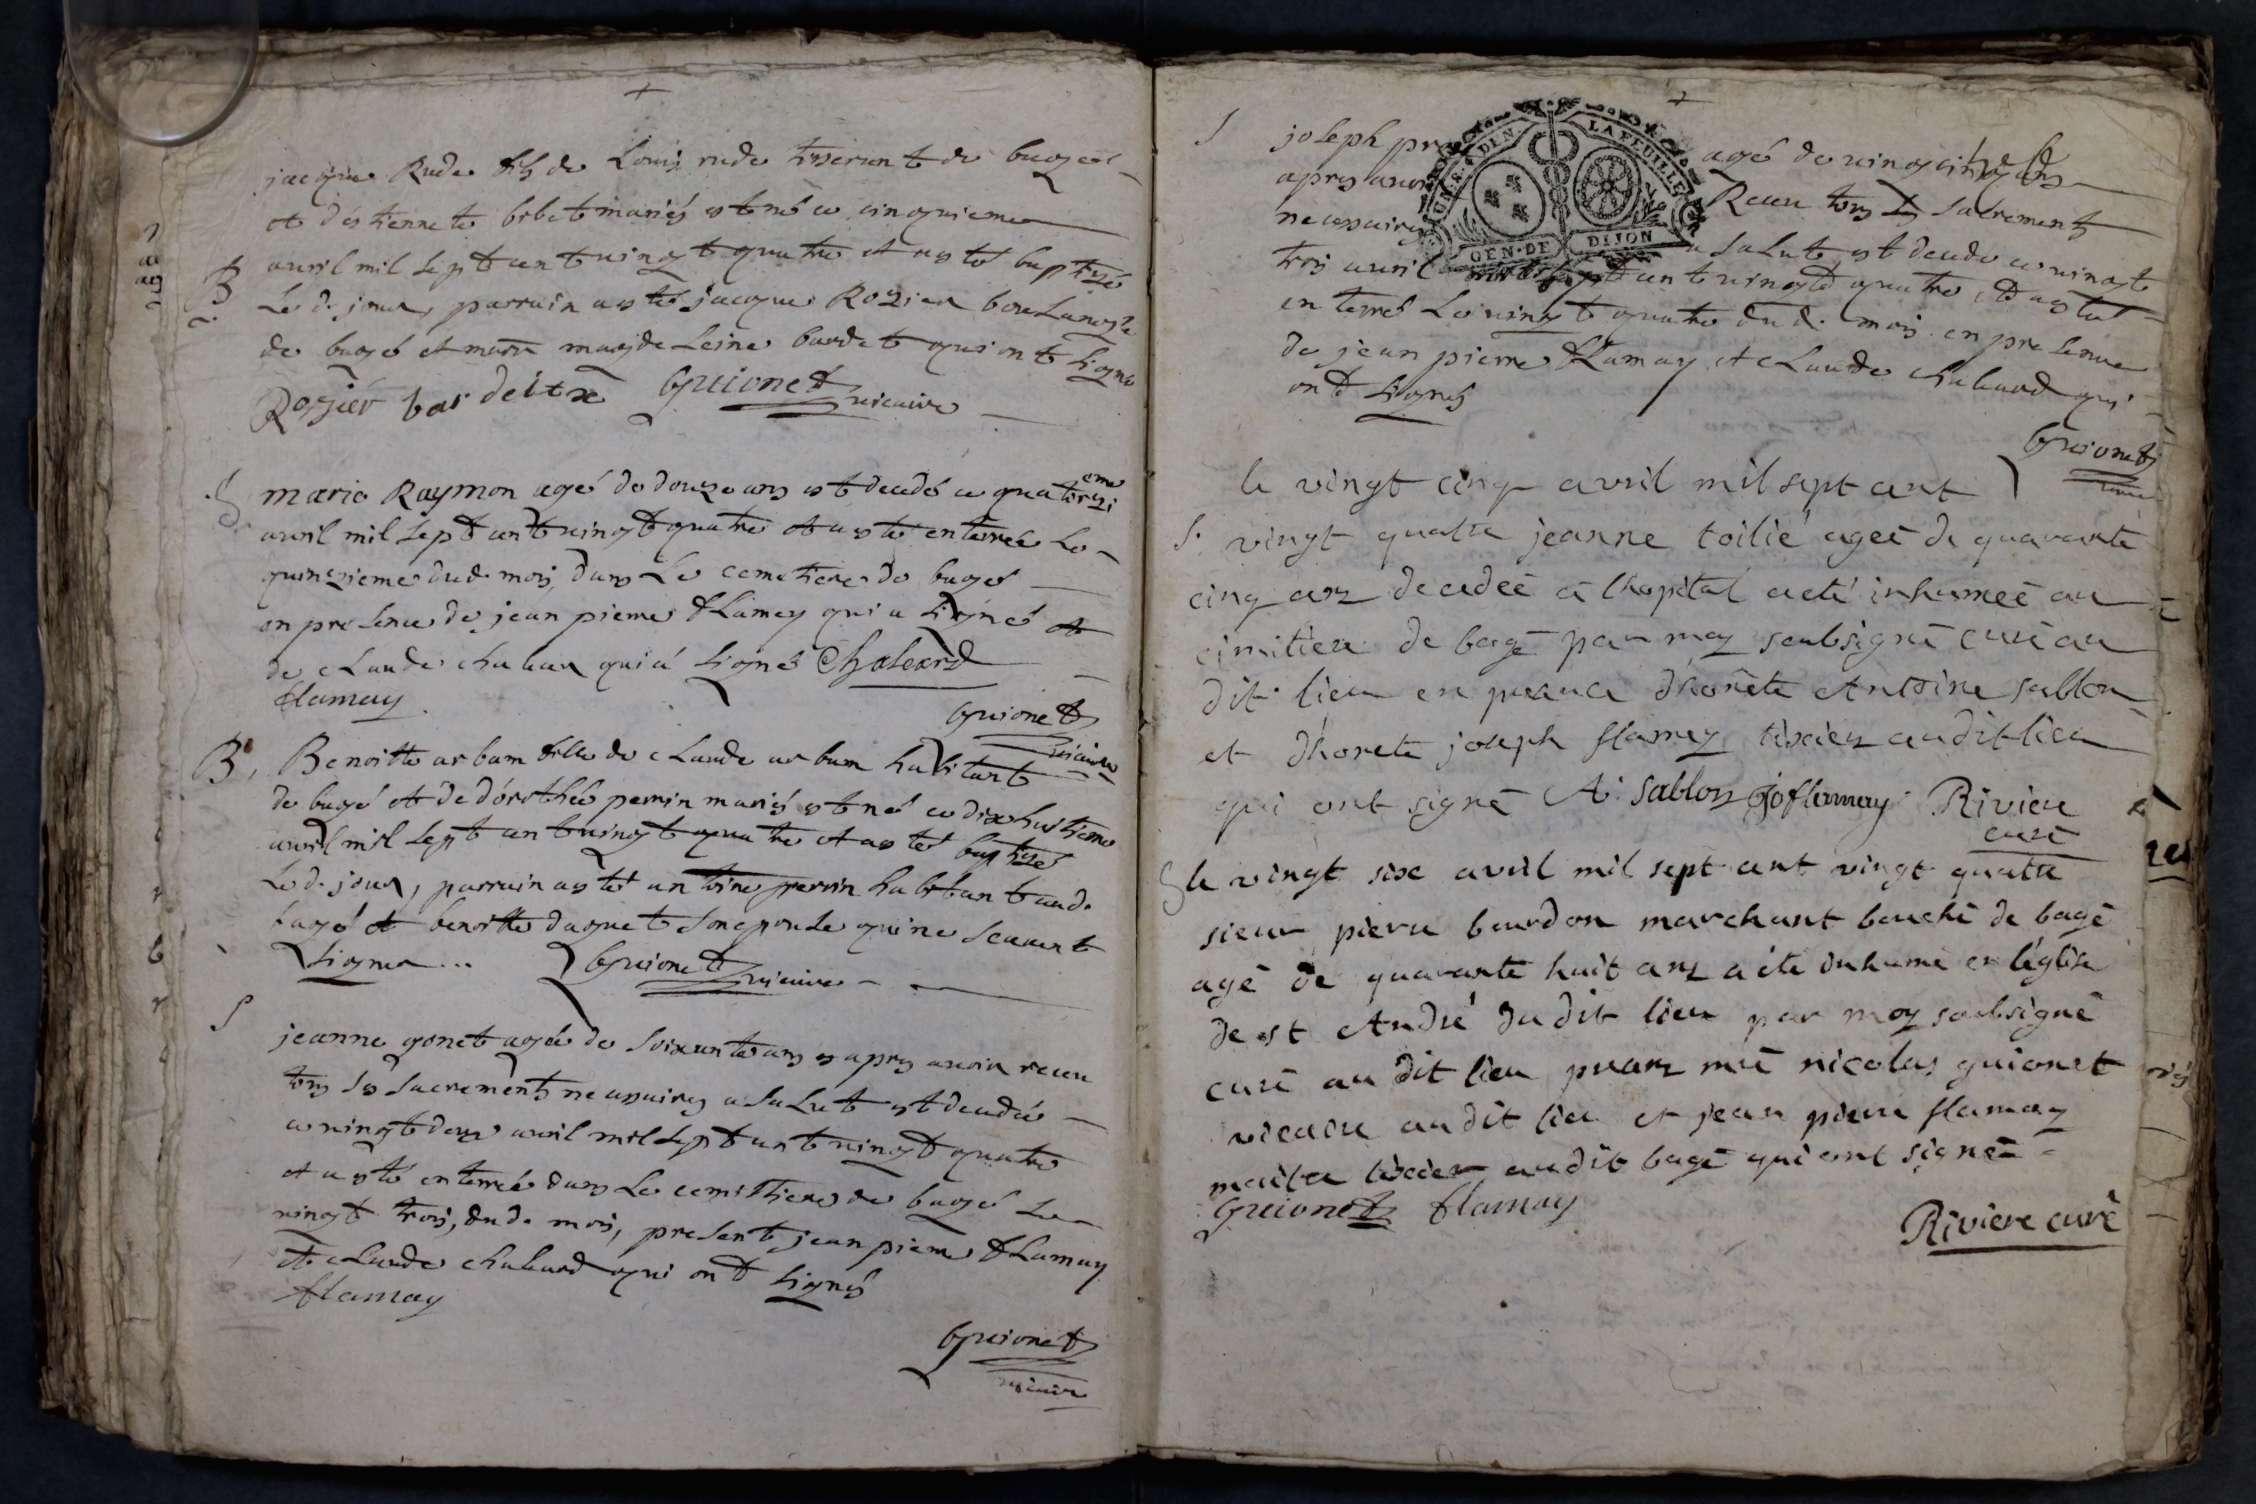 jacque Rude fils de Louis rude tisserant de bugé
et d'estiennete bebet mariés est né ce cinquieme
B
avril mil sept cent vingt quatre et a esté baptizé
le d. jour, parrain a esté jacque Rozier boulangé
de bagé et marr. magdeleine bardet qui ont signé
Rozier bardeitx Guionet vicaire
S
marie Raymon agé de douze ans est decedé ce quatorzieme
avril mil sept cent vingt quatre et a esté enterrée le
quinzieme dud. mois dans le cemetiere de bagé
en presence de jean pierre flamay qui a signé et
de claude chaleard qui a signé Chaleard
flamay
Guionet
vicaire
B.
Benoitte urbam fille de claude urbam habitant
de bagé et de dorothée perrin mariés est né ce dixhuitieme
avril mil sept cent vingt quatre et a esté baptizé
le d. jour, parrain a esté antoine perrin habitant aud.
bagé et benoitte daguet son epouse qui ne scavent
signer... Guionet vicaire
S
jeanne gonet agée de soixante ans apres avoir receu
tous les sacrements necessaires a salut est decedée
ce vingt deux avril mil sept cent vingt quatre
et a esté enterrée dans le cemistiere de bagé le
vingt trois, dud. mois, present jean pierre flamay
et claude chaleard qui ont signés
flamay
Guionet
vicaire
S
joseph agé de vingt cinq ans
apres avoir Receu tous les sacrements
necessaires a salut est decedé ce vingt
trois avril mil sept cent vingt quatre, et a esté
enterré le vingt quatre dud. mois en presence
de jean pierre flamay et claude chaleard qui
ont signés
Guionet
vicaire
GEN. DE DIJON
LA FEUILLE
S.
le vingt cinq avril mil sept cent
vingt quatre jeanne toilié ageé de quarante
cinq ans decedeé a lhopital a eté inhumeé au
cimitiere de bagé par moy soubsigné curé au
dit lieu en presence dhonête Antoine sablon
et dhonete joseph flamey tixier au dit lieu
qui ont signé A. Sablon jo flamay Riviere
curé
S
le vingt six avril mil sept cent vingt quatre
sieur pierre bourdon marchant bouché de bagé
agé de quarante huit ans a eté inhumé en léglise
de st André du dit lieu par moy soubsigné
curé au dit lieu presens mre nicolas guionet
vicaire au dit lieu et jean pierre flamay
maitre tixier au dit bagé qui ont signé
Guionet flamay
Riviere curé